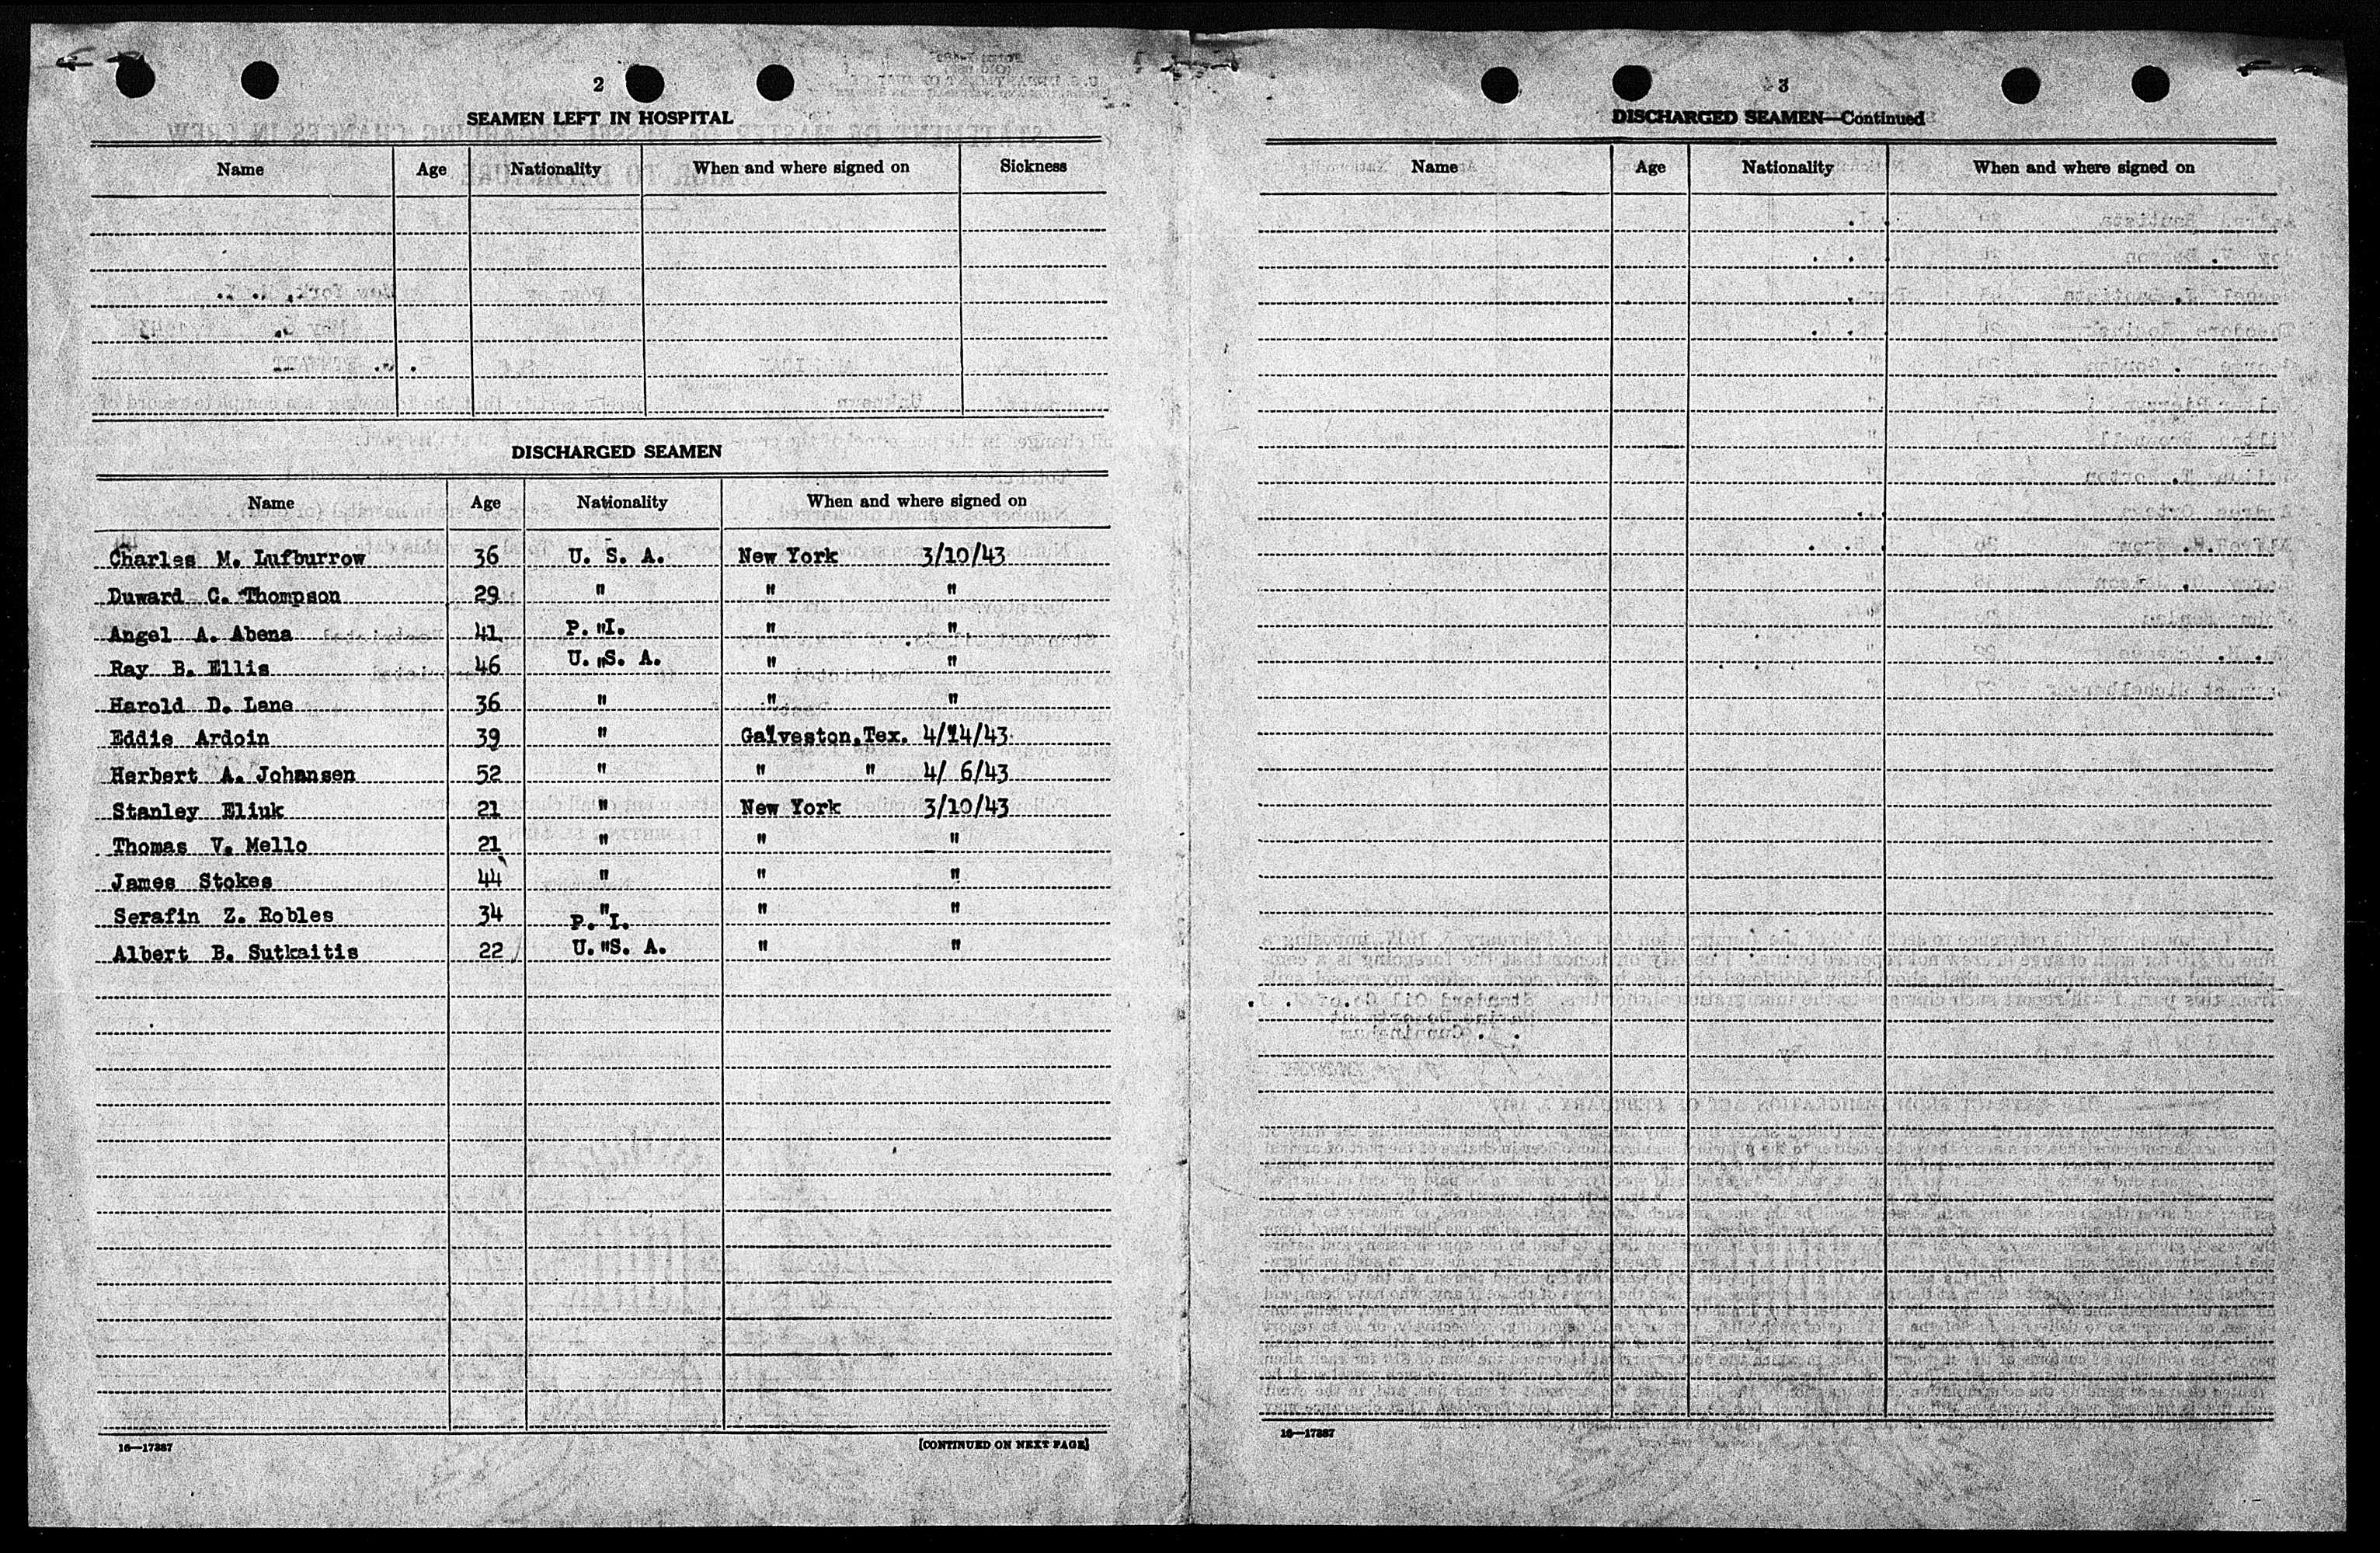 2
SEAMEN LEFT IN HOSPITAL
Name Age Nationality When and where signed on Sickness
DISCHARGED SEAMEN
Name Age Nationality When and where signed on
Charles M. Lufburrow 36 U. S. A. New York 3/10/43
Duward C. Thompson 29 " " "
Angel A. Abena 41 P. "I. " "
Ray B. Ellis 46 U. "S. A. " "
Harold D. Lane 36 " " "
Eddie Ardoin 39 " Galveston, Tex. 4/14/43
Herbert A. Johansen 52 " " " 4/ 6/43
Stanley Eliuk 21 " New York 3/10/43
Thomas V. Mello 21 " " "
James Stokes 44 " " "
Serafin Z. Robles 34 P. "I. " "
Albert B. Sutkaitis 22 U. "S. A. " "
16—17387
[CONTINUED ON NEXT PAGE]
3
DISCHARGED SEAMEN—Continued
Name Age Nationality When and where signed on
16—17387